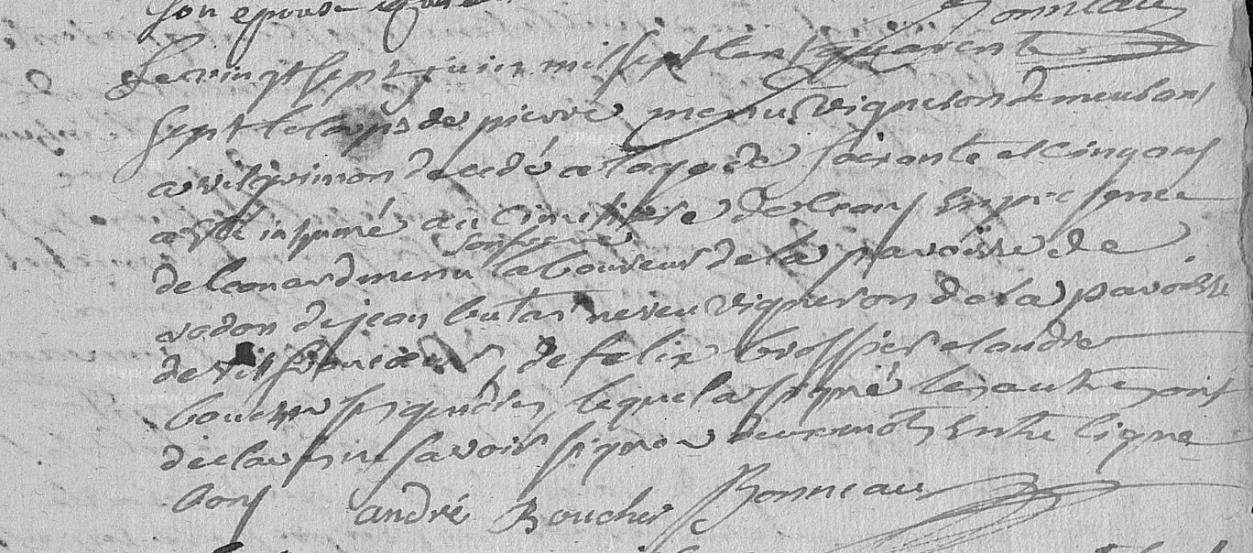 son epouse
Bonneau
Le vingt sept juin mil sept cent quarente
sept le corps de pierre menu vigneron demeurant
a decedé a l'age de soixante et cinq ans
a esté inhumé au cimetiere de ceans en presence
son frere
de leonard menu laboureur de la paroisse de
de jean butas neveu vigneron de la paroisse
de de felix brossier et andré
boucher ses gendres, lequel a signé les autres ont
declaré ne savoir signer deux mots entre ligne
bons andré Boucher Bonneau